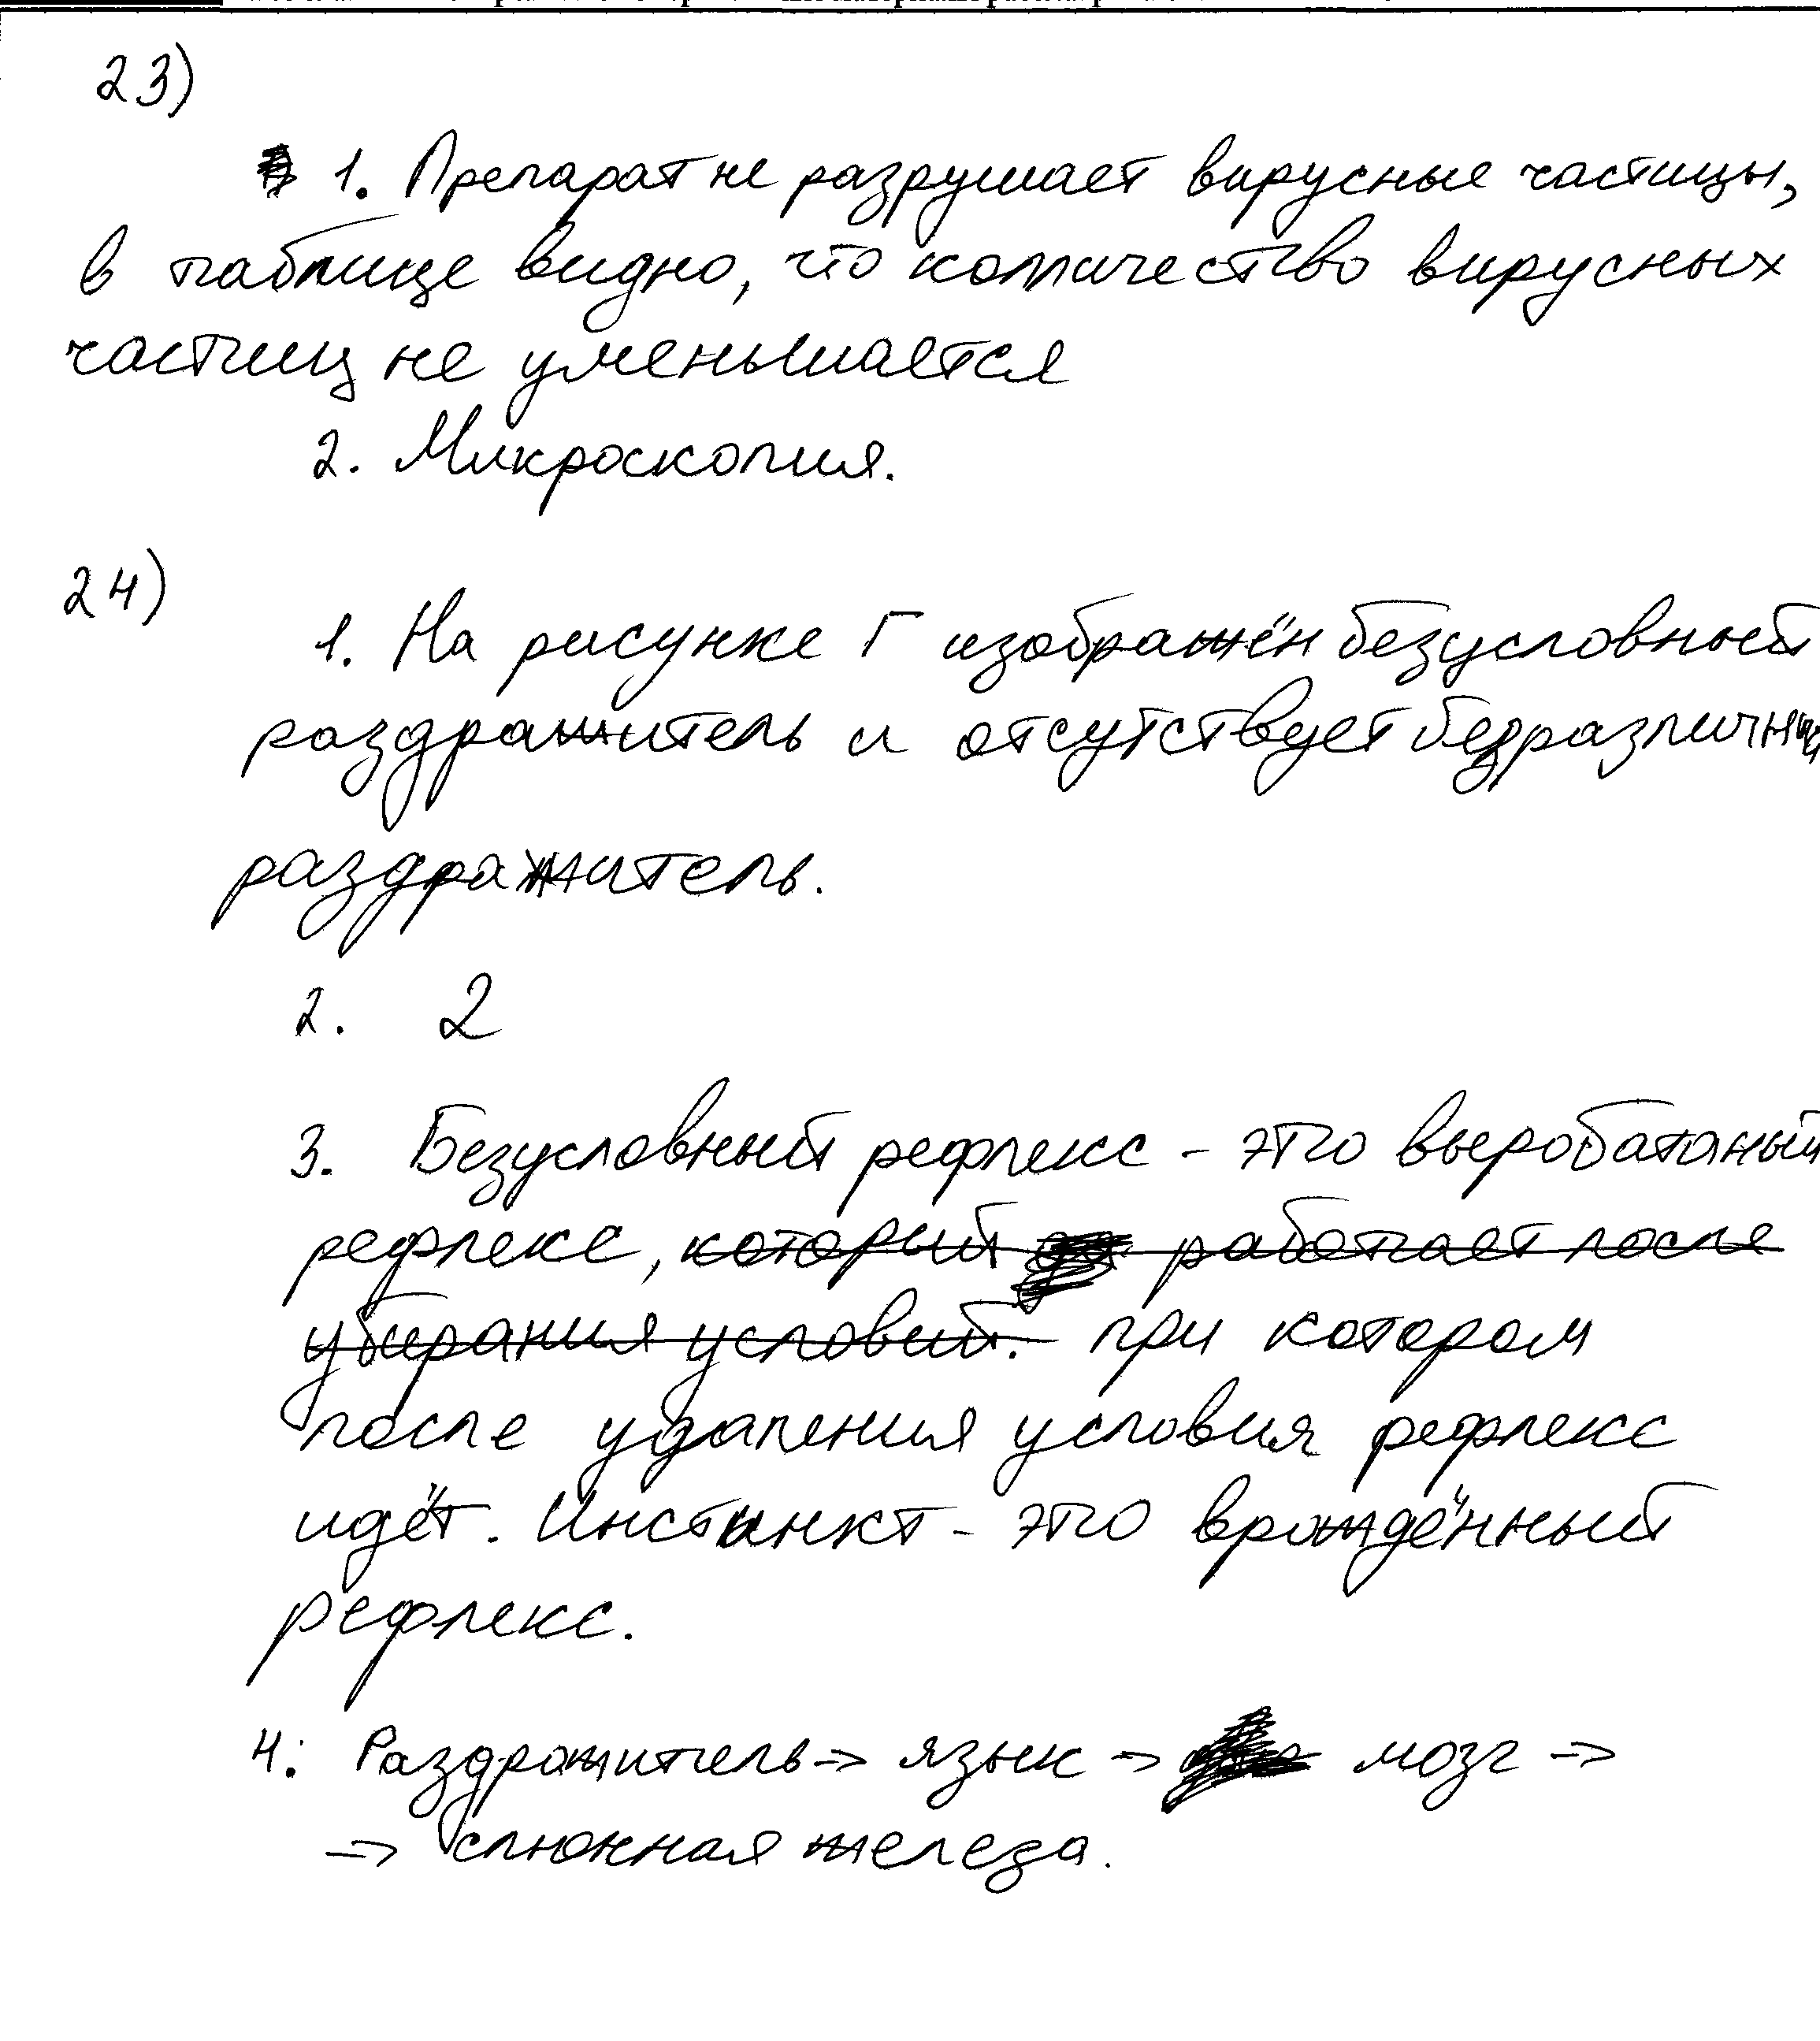 23)
1. Препарат не разрушает вирусные частицы,
в таблице видно, что колличество вирусных
частиц не уменьшается
2. Микроскопия.
24)
1. На рисунке Г изображён безусловный
раздражитель и отсутствует
раздражитель.
2. 2
3. Безусловный рефлекс - это выробатаный
рефлекс, который работает после
убирания условий. при котором
после удаления условия рефлекс
идёт. Инстинкт - это врождённый
рефлекс.
4. Раздражитель => язык => мозг =>
=> слюнная железа.